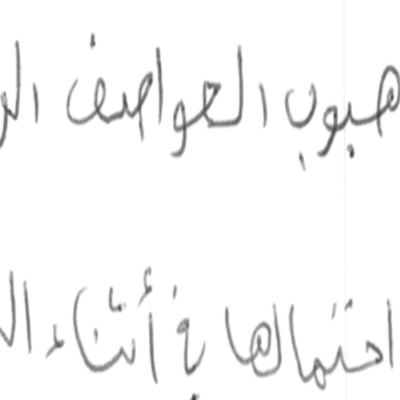 هبوب العواصف الر
احتمالها في أثناء ال